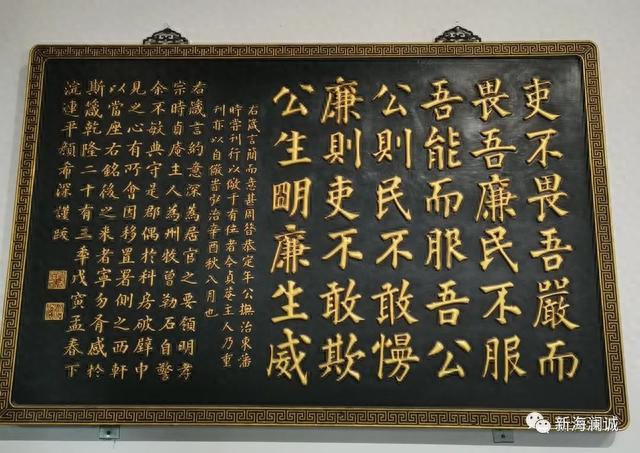 吏不畏吾嚴而
畏吾廉民不服
吾能而服吾公
公則民不敢慢
廉則吏不敢欺
公生明廉生威
右箴言簡而意甚周昔恭定年公撫治東藩
時嘗刊行以儆于有位者今貞菴主人乃重
刊亦以自儆皆弘治辛酉秋八月也
右箴言約意深為居官之要領明孝
宗時貞庵主人為州牧曾勒石自警
余不敏典守是郡偶於科房破壁中
見之心有所會因移置署側之西軒
以當座右銘後之来者寧勿胥感於
斯箴乾隆二十有三年戊寅孟春下
浣連平顏希深謹跋
新海澜诚